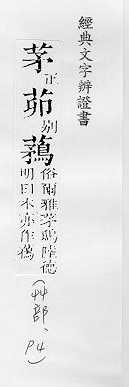 經典文字辨證書
茅正茆別鶜俗爾雅茅鴟陸德
明曰本亦作鶜
(艸部、P4)